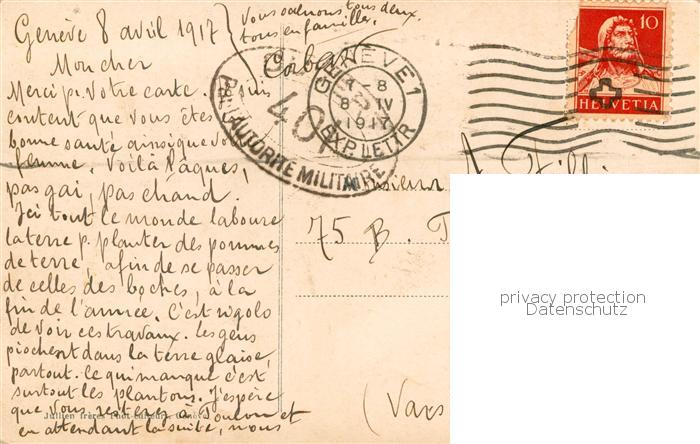 Genève 8 avril 1917
Vous saluons tous deux
tous en familles.
Mon cher
Merci pr. votre carte. Je suis
content que vous êtes
bonne santé ainsi que vôtre
femme. Voilà Pâques,
pas gai, pas chaud.
Ici tout le monde laboure
la terre p. planter des pommes
de terre, afin de se passer
de celles des boches, à la
fin de l'année. C'est rigolo
de voir ces travaux. Les gens
piochent dans la terre glaise,
partout. Ce qui manque c'est
surtout les plantons. J'espère
que vous resterez à Toulon et
en attendant la suite, nous
GENÈVE 1
8
8 IV
1917
EXP. LETTR
PAR AUTORITÉ MILITAIRE
40
10
HELVETIA
75 B. T
(Vars
Jullien frères Phot-éditeurs, Genève
privacy protection
Datenschutz